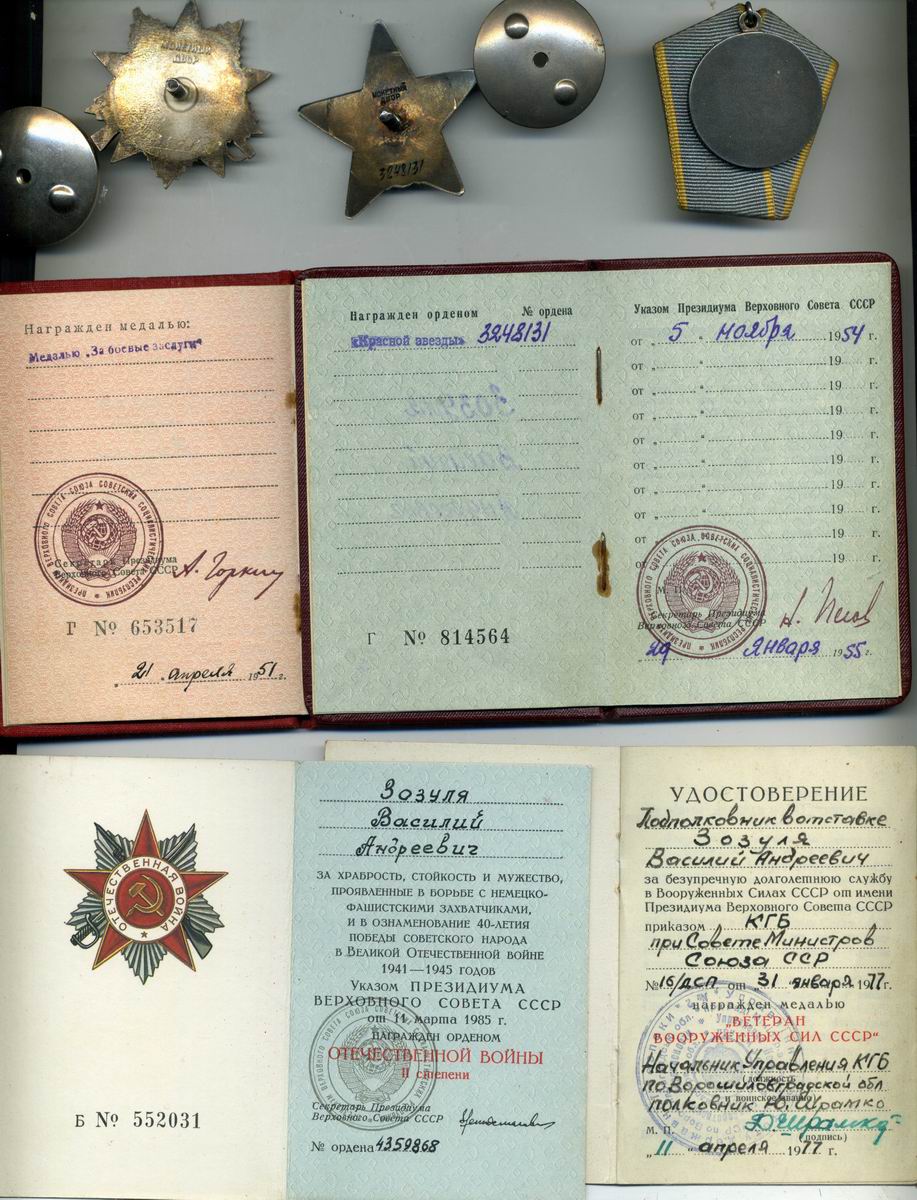 МОНЕТНЫЙ
ДВОР
МОНЕТНЫЙ
ДВОР
3248131
Награжден медалью:
Медалью „За боевые заслуги"
Секретарь Президиума
Верховного Совета СССР
А. Горкин
Г № 653517
„21" апреля 1951 г.
Награжден орденом № ордена
«Красной звезды» 3248131
Г № 814564
Указом Президиума Верховного Совета СССР
от „5" ноября 1954 г.
от „ " 19 г.
от „ " 19 г.
от „ " 19 г.
от „ " 19 г.
от „ " 19 г.
от „ " 19 г.
от „ " 19 г.
от „ " 19 г.
от 19 г.
М. П.
Секретарь Президиума
Верховного Совета СССР
Н. Пегов
29 января 1955 г.
ОТЕЧЕСТВЕННАЯ ВОЙНА
Б № 552031
Зозуля
Василий
Андреевич
ЗА ХРАБРОСТЬ, СТОЙКОСТЬ И МУЖЕСТВО,
ПРОЯВЛЕННЫЕ В БОРЬБЕ С НЕМЕЦКО-
ФАШИСТСКИМИ ЗАХВАТЧИКАМИ,
И В ОЗНАМЕНОВАНИЕ 40-ЛЕТИЯ
ПОБЕДЫ СОВЕТСКОГО НАРОДА
В ВЕЛИКОЙ ОТЕЧЕСТВЕННОЙ ВОЙНЕ
1941—1945 ГОДОВ
УКАЗОМ ПРЕЗИДИУМА
ВЕРХОВНОГО СОВЕТА СССР
от 11 марта 1985 г.
НАГРАЖДЕН ОРДЕНОМ
ОТЕЧЕСТВЕННОЙ ВОЙНЫ
II степени
Секретарь Президиума
Верховного Совета СССР
№ ордена 4359868
УДОСТОВЕРЕНИЕ
Подполковник в отставке
Зозуля
Василий Андреевич
за безупречную долголетнюю службу
в Вооруженных Силах СССР от имени
Президиума Верховного Совета СССР
приказом КГБ
при Совете Министров
Союза ССР
№ 16/ДСП от „31" января 1977 г.
награжден медалью
„ВЕТЕРАН
ВООРУЖЕННЫХ СИЛ СССР"
Начальник Управления КГБ
(должность
по Ворошиловградской обл
и воинское звание)
полковник Ю. Шрамко
М. П. (подпись)
„11" апреля 1977 г.